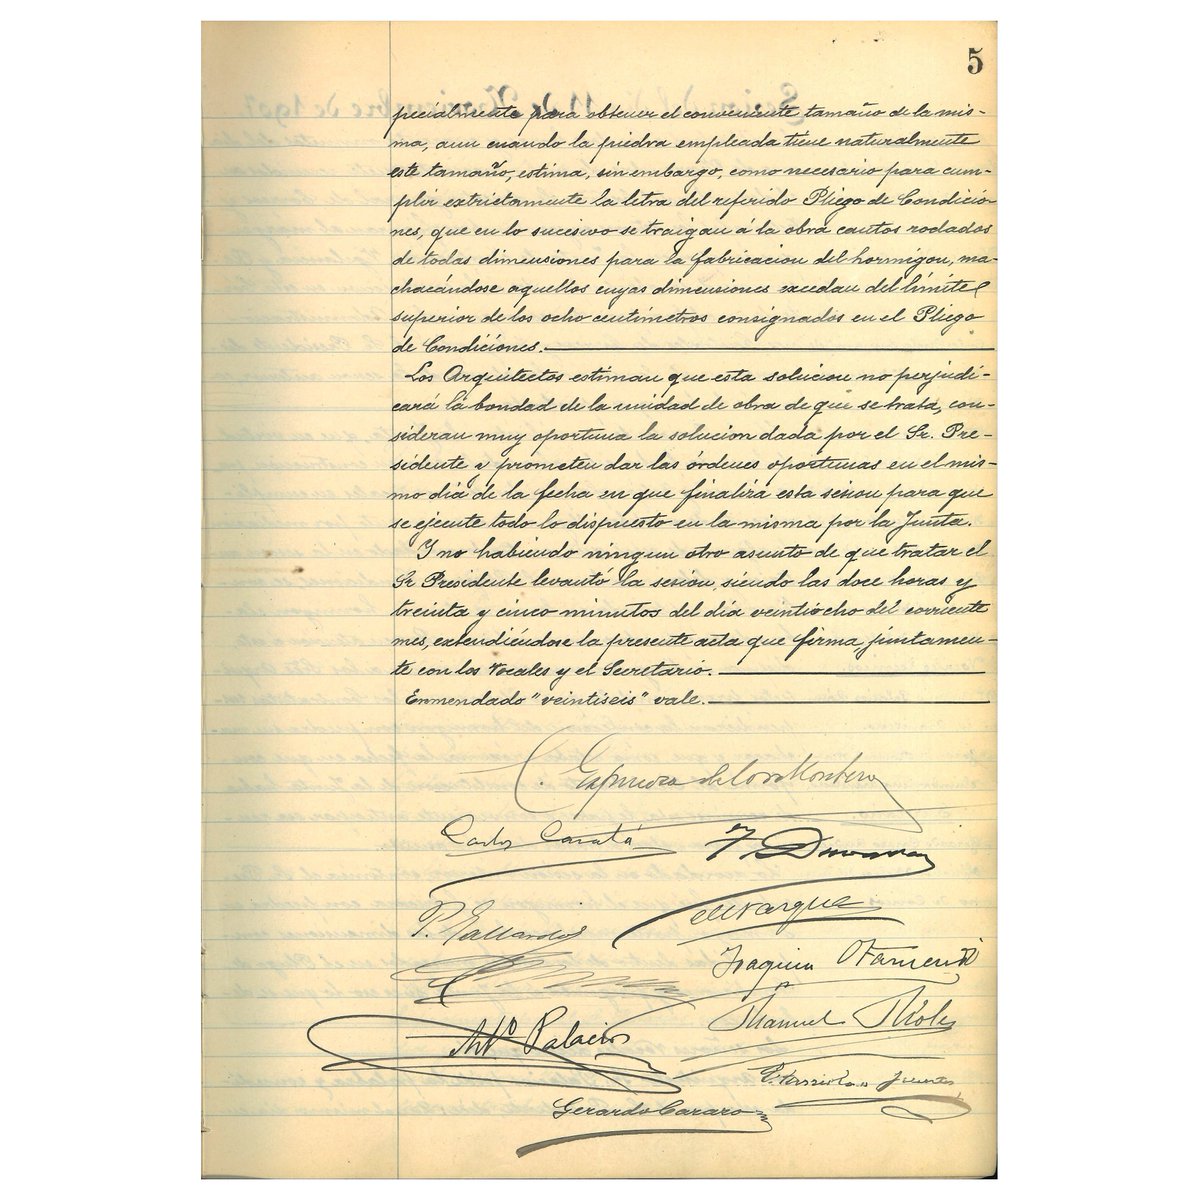 5
pecialmente para obtener el conveniente tamaño de la mis-
ma, aun cuando la piedra empleada tiene naturalmente
este tamaño, estima, sin embargo, como necesario para cum-
plir extrictamente la letra del referido Pliego de Condicio-
nes, que en lo sucesivo se traigan á la obra cantos rodados
de todas dimensiones para la fabricacion del hormigon, ma-
chacándose aquellos cuyas dimensiones excedan del límite
superior de los ocho centímetros consignados en el Pliego
de Condiciones.
Los Arquitectos estiman que esta solucion no perjudi-
cará la bondad de la unidad de obra de que se trata, con-
sideran muy oportuna la solucion dada por el Sr. Pre-
sidente y prometen dar las órdenes oportunas en el mis-
mo día de la fecha en que finalizá esta sesion para que
se ejecute todo lo dispuesto en la misma por la Junta.
Y no habiendo ningun otro asunto de que tratar el
Sr Presidente levantó la sesion, siendo las doce horas y
treinta y cinco minutos del día veintiocho del corriente
mes, extendiéndose la presente acta que firma, juntamen-
te con los Vocales y el Secretario.
Enmendado "veintiseis" vale.
Carlos
P. Gallardo
Joaquin Otamendi
Manuel
Antº Palacios
Gerardo